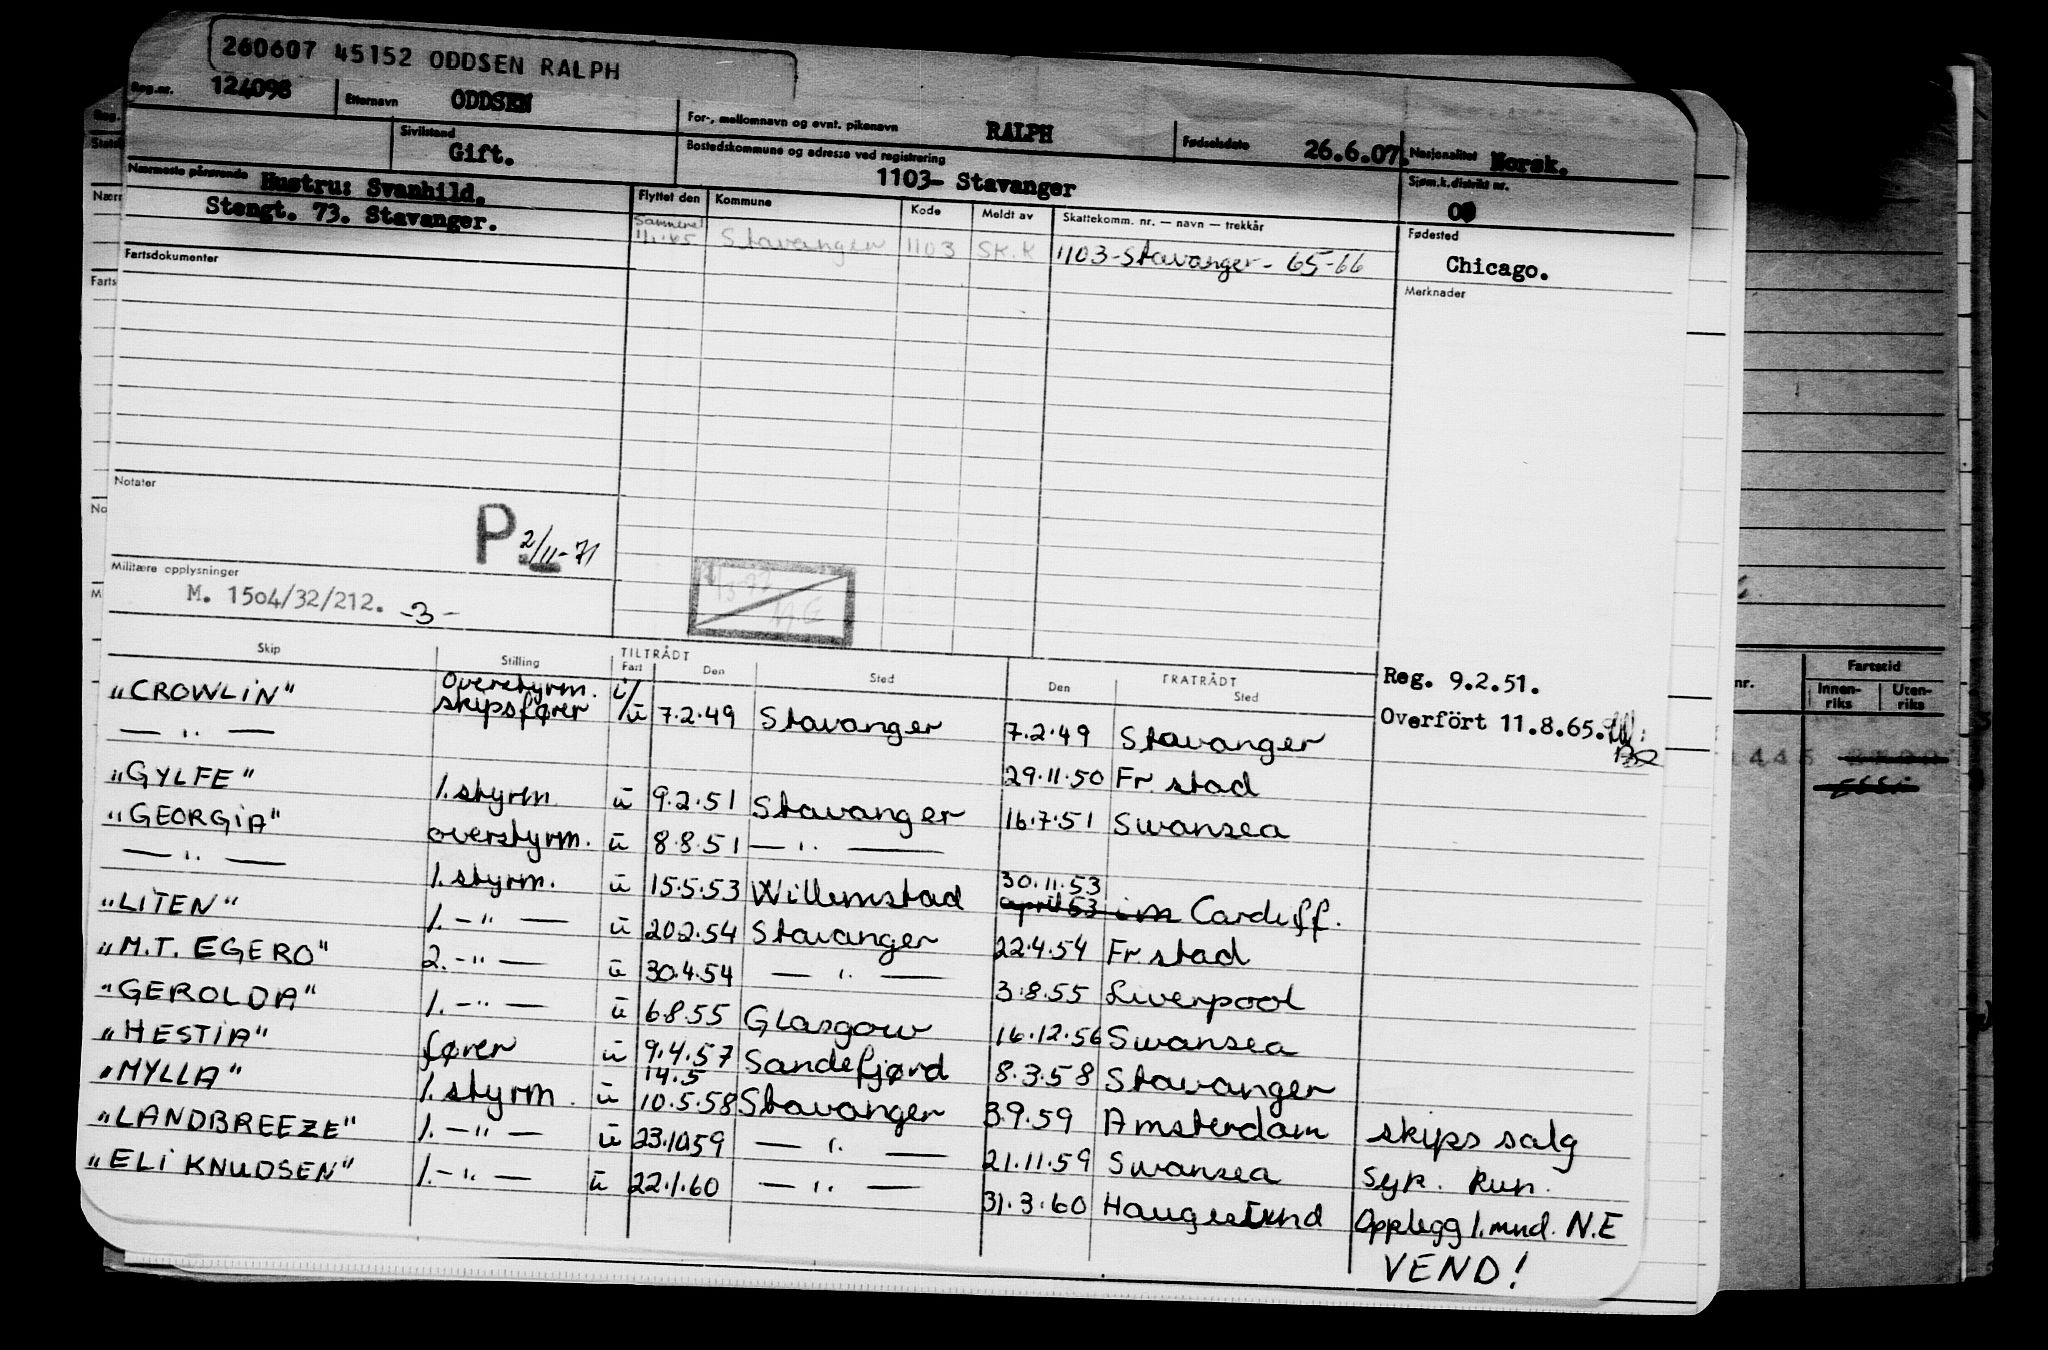 260607 45152 ODDSEN RALPH
Reg.nr. 124098 Etternavn ODDSEN For-, mellomnavn og evnt. pikenavn RALPH Fødselsdato 26.6.07. Nasjonalitet Norsk.
Sivilstand Gift. Bostedskommune og adresse ved registrering 1103- Stavanger Sjøm.k.distrikt nr.
Nærmeste pårørende Hustru: Svanhild.
Stengt. 73. Stavanger.
Flyttet den Kommune Kode Meldt av Skattekomm. nr. — navn — trekkår
1/1-65 Stavanger 1103 SK.K 1103-Stavanger- 65-66
Fødested
Chicago.
Fartsdokumenter
Merknader
Notater
P 2/11-71
Militære opplysninger
M. 1504/32/212. -3-
Skip Stilling TILTRÅDT Fart Den Sted FRATRÅDT Den Sted
Reg. 9.2.51.
Overfört 11.8.65.
"CROWLIN" Overstyrm. skipsfører i/u 7.2.49 Stavanger 7.2.49 Stavanger
— " — 29.11.50 Fr.stad
"GYLFE" 1.styrm u 9.2.51 Stavanger 16.7.51 Swansea
"GEORGIA" overstyrm. u 8.8.51 — " —
— " — 1.styrm. u 15.5.53 Willemstad 30.11.53 april 53 im Cardiff.
"LITEN" 1. — " — u 20.2.54 Stavanger 22.4.54 Fr.stad
"M.T. EGERO" 2. — " — u 30.4.54 — " — 3.8.55 Liverpool
"GEROLDA" 1. — " — u 6.8.55 Glasgow 16.12.56 Swansea
"HESTIA" fører u 9.4.57 Sandefjord 8.3.58 Stavanger
"MYLLA" 1.styrm. u 14.5 10.5.58 Stavanger 3.9.59 Amsterdam skips salg
"LANDBREEZE" 1. — " — u 23.10.59 — " — 21.11.59 Swansea Syk. Run.
"ELI KNUDSEN" 1. — " — u 22.1.60 — " — 31.3.60 Haugesund Opplegg 1.mnd. N.E
VEND!
nr. Fartstid
Innen-riks Uten-riks